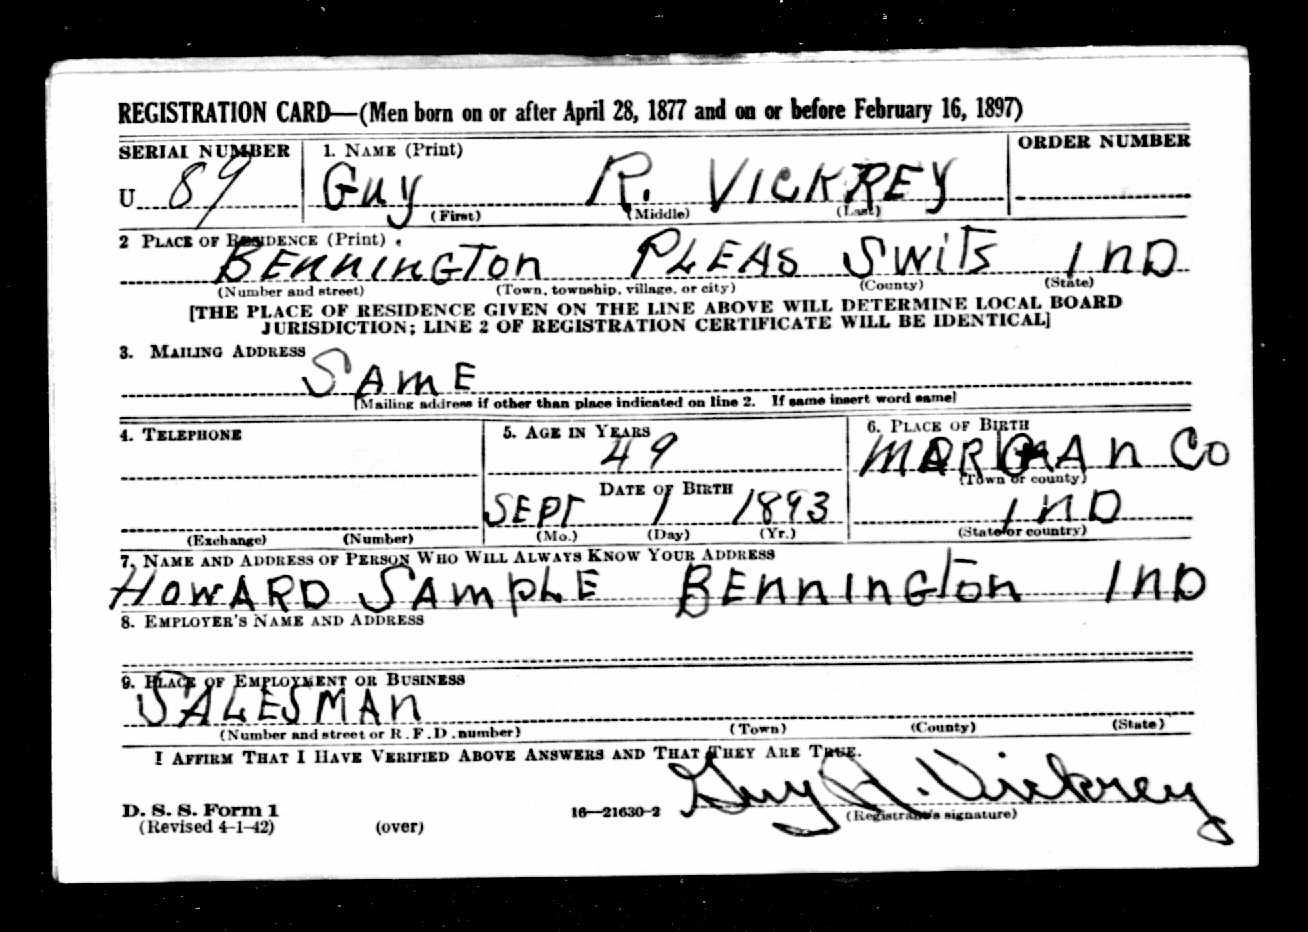 REGISTRATION CARD—(Men born on or after April 28, 1877 and on or before February 16, 1897)
SERIAL NUMBER 1. NAME (Print) ORDER NUMBER
U 89 GUY R. VICKREY
(First) (Middle) (Last)
2 PLACE OF RESIDENCE (Print)
BENNINGTON PLEAS SWITS IND
(Number and street) (Town, township, village, or city) (County) (State)
[THE PLACE OF RESIDENCE GIVEN ON THE LINE ABOVE WILL DETERMINE LOCAL BOARD
JURISDICTION; LINE 2 OF REGISTRATION CERTIFICATE WILL BE IDENTICAL]
3. MAILING ADDRESS
SAME
[Mailing address if other than place indicated on line 2. If same insert word same]
4. TELEPHONE 5. AGE IN YEARS 6. PLACE OF BIRTH
49 MORGAN CO
(Town or county)
DATE OF BIRTH
SEPT 1 1893 IND
(Exchange) (Number) (Mo.) (Day) (Yr.) (State or country)
7. NAME AND ADDRESS OF PERSON WHO WILL ALWAYS KNOW YOUR ADDRESS
HOWARD SAMPLE BENNINGTON IND
8. EMPLOYER'S NAME AND ADDRESS
9. PLACE OF EMPLOYMENT OR BUSINESS
SALESMAN
(Number and street or R. F. D. number) (Town) (County) (State)
I AFFIRM THAT I HAVE VERIFIED ABOVE ANSWERS AND THAT THEY ARE TRUE.
Guy R. Vickrey
D. S. S. Form 1 16—21630-2 (Registrant's signature)
(Revised 4-1-42) (over)